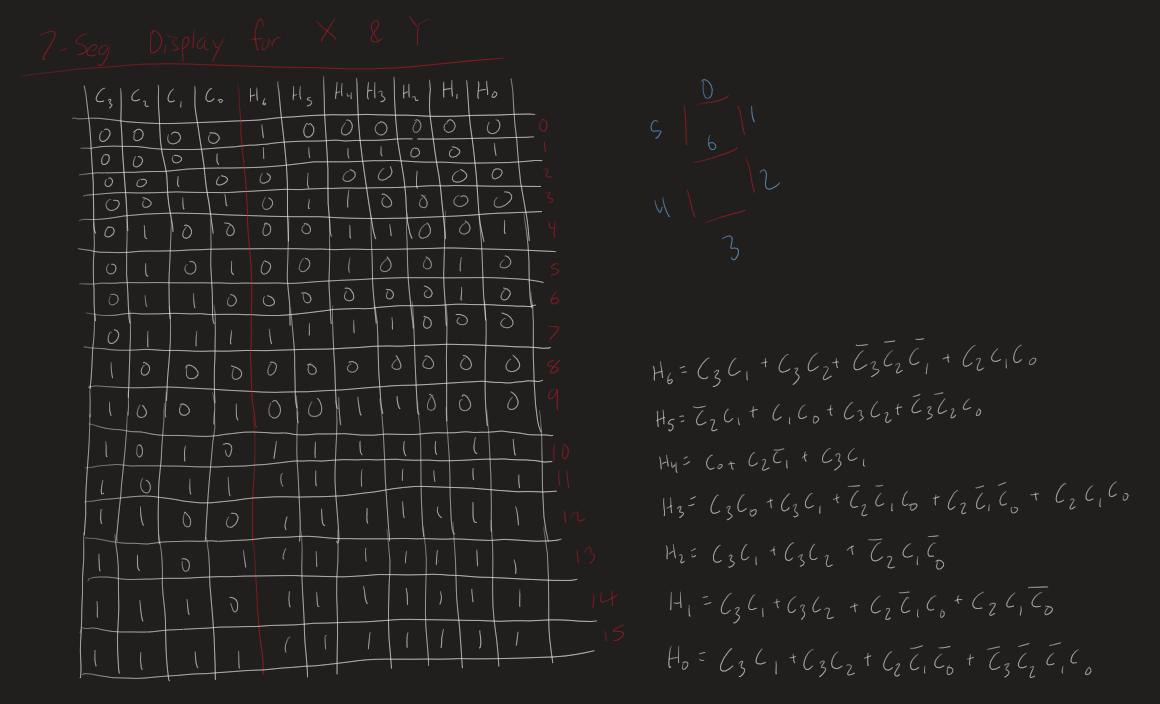 7-Seg Display for X & Y
C₃ C₂ C₁ C₀ H₆ H₅ H₄ H₃ H₂ H₁ H₀
0 0 0 0 1 0 0 0 0 0 0 0
0 0 0 1 1 1 1 1 0 0 1 1
0 0 1 0 0 1 0 0 1 0 0 2
0 0 1 1 0 1 1 0 0 0 0 3
0 1 0 0 0 0 1 1 0 0 1 4
0 1 0 1 0 0 1 0 0 1 0 5
0 1 1 0 0 0 0 0 0 1 0 6
0 1 1 1 1 1 1 1 0 0 0 7
1 0 0 0 0 0 0 0 0 0 0 8
1 0 0 1 0 0 1 1 0 0 0 9
1 0 1 0 1 1 1 1 1 1 1 10
1 0 1 1 1 1 1 1 1 1 1 11
1 1 0 0 1 1 1 1 1 1 1 12
1 1 0 1 1 1 1 1 1 1 1 13
1 1 1 0 1 1 1 1 1 1 1 14
1 1 1 1 1 1 1 1 1 1 1 15
0
5 1
6
4 2
3
H₆ = C₃C₁ + C₃C₂ + C̅₃C̅₂C̅₁ + C₂C₁C₀
H₅ = C̅₂C₁ + C₁C₀ + C₃C₂ + C̅₃C̅₂C₀
H₄ = C₀ + C₂C̅₁ + C₃C₁
H₃ = C₃C₀ + C₃C₁ + C̅₂C̅₁C₀ + C₂C̅₁C̅₀ + C₂C₁C₀
H₂ = C₃C₁ + C₃C₂ + C̅₂C₁C̅₀
H₁ = C₃C₁ + C₃C₂ + C₂C̅₁C₀ + C₂C₁C̅₀
H₀ = C₃C₁ + C₃C₂ + C₂C̅₁C̅₀ + C̅₃C̅₂C̅₁C₀